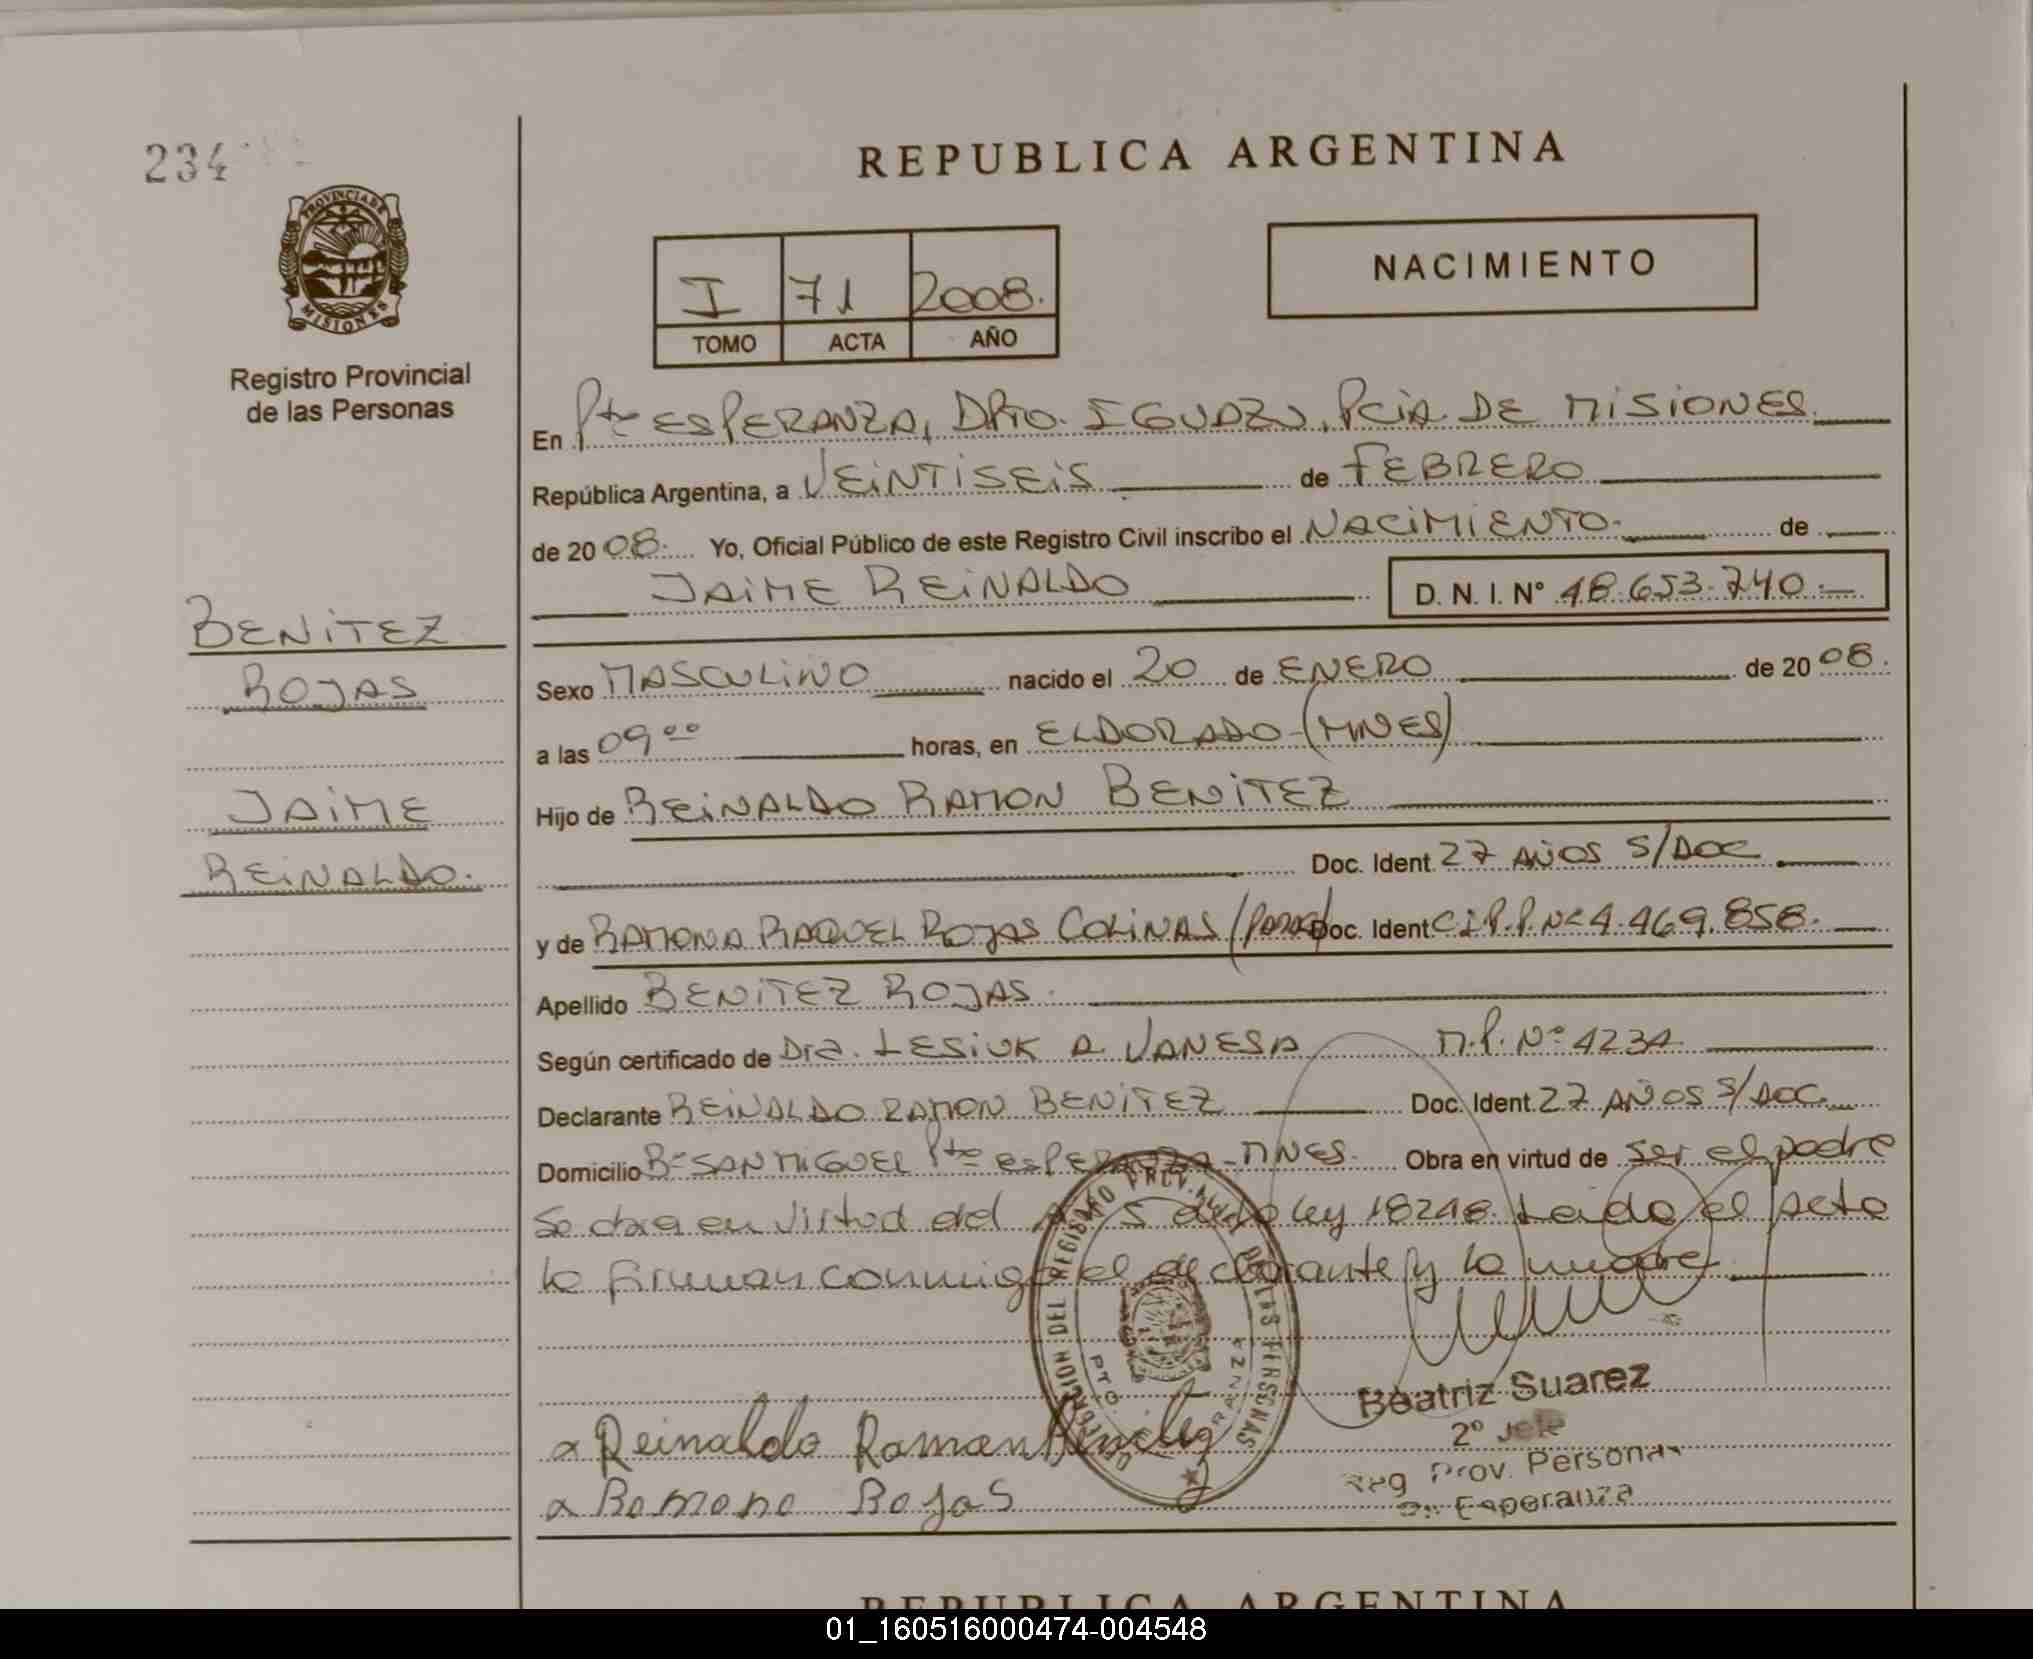 234
REPUBLICA ARGENTINA
PROVINCIA DE
MISIONES
Registro Provincial
de las Personas
I 71 2008.
TOMO ACTA AÑO
NACIMIENTO
En Pto ESPERANZA, DPTO. IGUAZU, PCIA. DE MISIONES.
República Argentina, a VEINTISEIS de FEBRERO
de 2008. Yo, Oficial Público de este Registro Civil inscribo el NACIMIENTO. de
JAIME REINALDO D. N. I. N° 48.653.740.
BENITEZ
ROJAS
JAIME
REINALDO.
Sexo MASCULINO nacido el 20 de ENERO de 2008.
a las 09 00 horas, en ELDORADO-(MNES)
Hijo de REINALDO RAMON BENITEZ
Doc. Ident. 27 AÑOS S/DOC
y de RAMONA RAQUEL ROJAS COLINAS Doc. Ident C.I.P.P. Nº 4.469.858.
Apellido BENITEZ ROJAS.
Según certificado de Dra. LESIUK A. VANESA M.P. Nº 4234
Declarante REINALDO RAMON BENITEZ Doc. Ident. 27 AÑOS S/DOC.
Domicilio Bº SAN MIGUEL Pto ESPERANZA-MNES. Obra en virtud de ser el padre
Se obra en virtud del 5 de la ley 18248. Leida el acta
la firman conmigo el declarante y la madre
OFICINA DEL REGISTRO PROV. DE LAS PERSONAS
PTO. ESPERANZA
Beatriz Suarez
2º Jefe
Reg Prov. Personas
Esperanza
Reinaldo Ramon Benitez
Ramona Rojas
REPUBLICA ARGENTINA
01_160516000474-004548